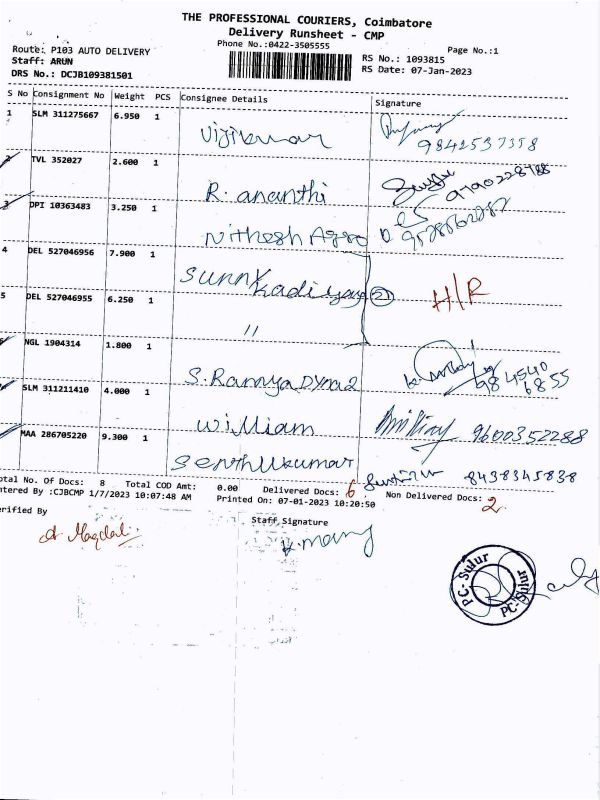 THE PROFESSIONAL COURIERS, Coimbatore
Delivery Runsheet - CMP
Phone No.:0422-3505555
Page No.:1
Route: P103 AUTO DELIVERY
Staff: ARUN
DRS No.: DCJB109381501
RS No.: 1093815
RS Date: 07-Jan-2023
S No Consignment No Weight PCS Consignee Details Signature
1 SLM 311275667 6.950 1
Vijikumar 9842537358
TVL 352027 2.600 1
R. ananthi
3 DPI 10363483 3.250 1
Nithesh Agro
4 DEL 527046956 7.900 1
Sunny
5 DEL 527046955 6.250 1
" H/R
NGL 1904314 1.800 1
S. Ramya
984540
6855
SLM 311211410 4.000 1
William 9600352288
MAA 286705220 9.300 1
Senthilkumar 8438345838
otal No. Of Docs: 8 Total COD Amt: 0.00 Delivered Docs: 6 Non Delivered Docs: 2
ntered By :CJBCMP 1/7/2023 10:07:48 AM Printed On: 07-01-2023 10:20:50
erified By Staff Signature
PC-Sulur
PC-Sulur